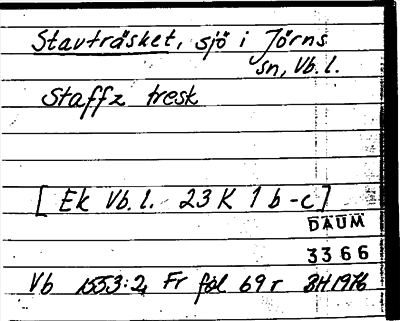 Stavträsket, sjö i Jörns
sn, Vb.l.
Staffz tresk
[ Ek Vb.l. 23 K 1 b-c]
DAUM
3366
Vb 1553:2, Fr föl 69 r BH 1976